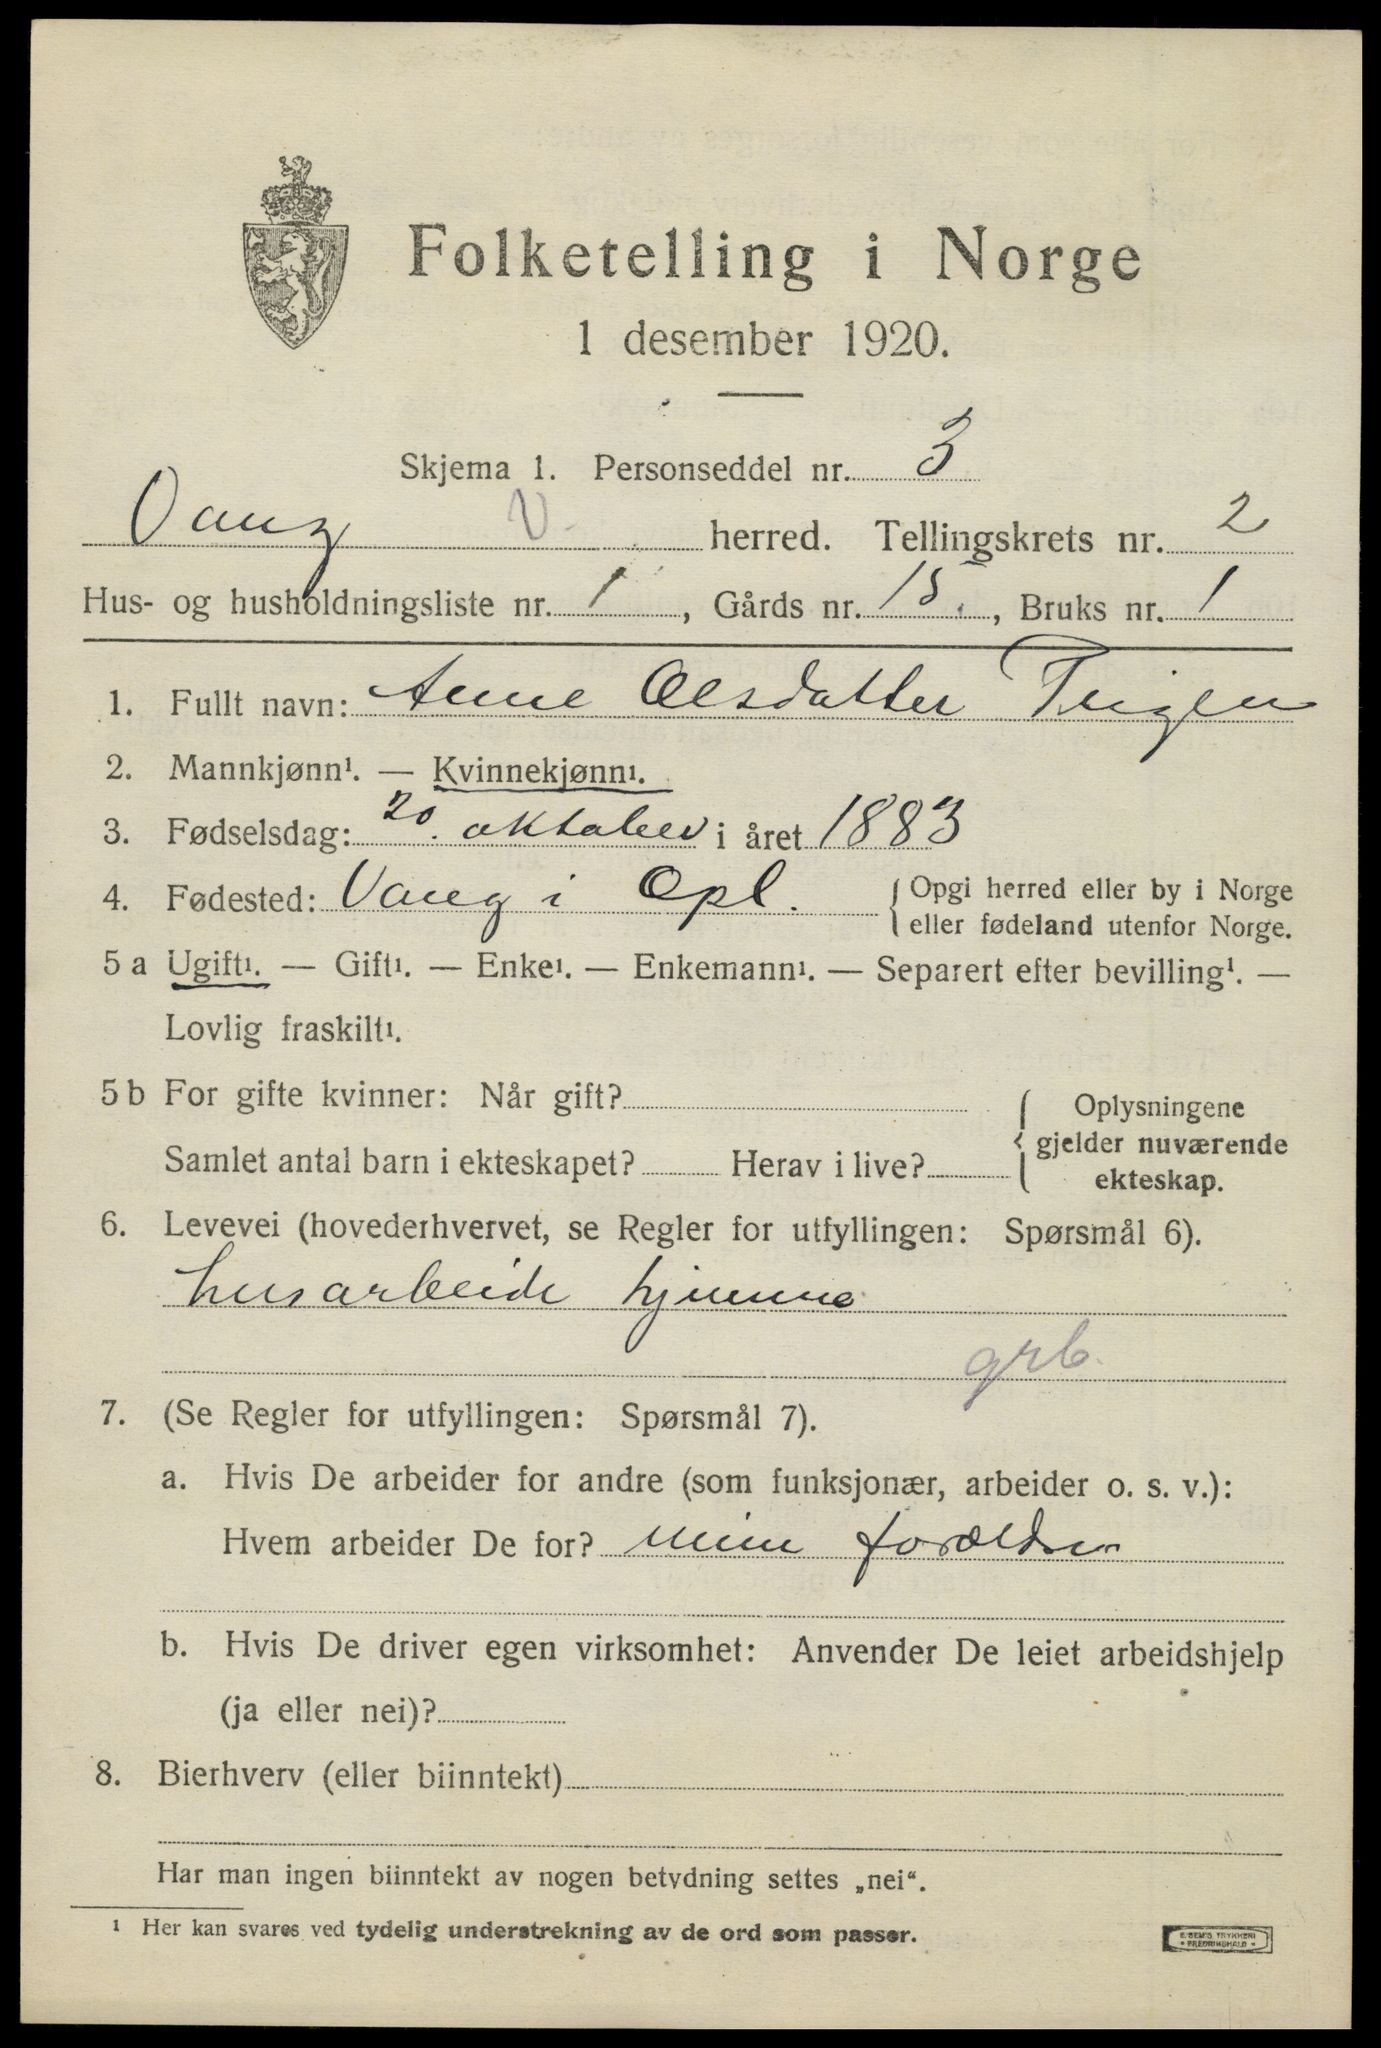 Folketelling i Norge
1 desember 1920.
Skjema 1. Personseddel nr. 3
Vang V. herred. Tellingskrets nr. 2
Hus- og husholdningsliste nr. 1, Gårds nr. 15., Bruks nr. 1
1. Fullt navn: Anne Olsdatter
2. Mannkjønn¹. — Kvinnekjønn¹.
3. Fødselsdag: 20. oktober i året 1883
4. Fødested: Vang i Opl. { Opgi herred eller by i Norge
eller fødeland utenfor Norge.
5 a Ugift¹. — Gift¹. — Enke¹. — Enkemann¹. — Separert efter bevilling¹. —
Lovlig fraskilt¹.
5 b For gifte kvinner: Når gift?
Samlet antal barn i ekteskapet? Herav i live?
{ Oplysningene
gjelder nuværende
ekteskap.
6. Levevei (hovederhvervet, se Regler for utfyllingen: Spørsmål 6).
husarbeide hjemme
grb.
7. (Se Regler for utfyllingen: Spørsmål 7).
a. Hvis De arbeider for andre (som funksjonær, arbeider o. s. v.):
Hvem arbeider De for? mine forældre
b. Hvis De driver egen virksomhet: Anvender De leiet arbeidshjelp
(ja eller nei)?
8. Bierhverv (eller biinntekt)
Har man ingen biinntekt av nogen betydning settes „nei“.
¹ Her kan svares ved tydelig understrekning av de ord som passer.
E. SEM'S TRYKKERI
FREDRIKSHALD